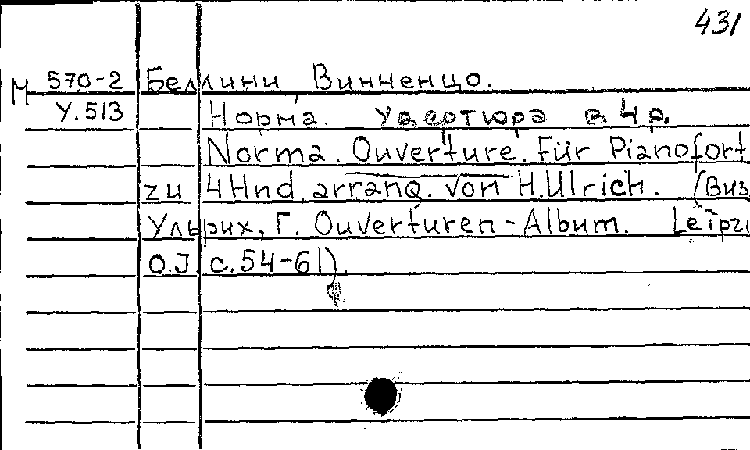 431
М 570-2 Беллини, Винченцо.
У.513 Норма. Увертюра в 4 р.
Norma. Ouverture. Für Pianofort
zu 4 Hnd. arrang. von H. Ulrich. (Виз
Ульрих, Г. Ouverturen-Album. Leipzi
O.J. с. 54-61).